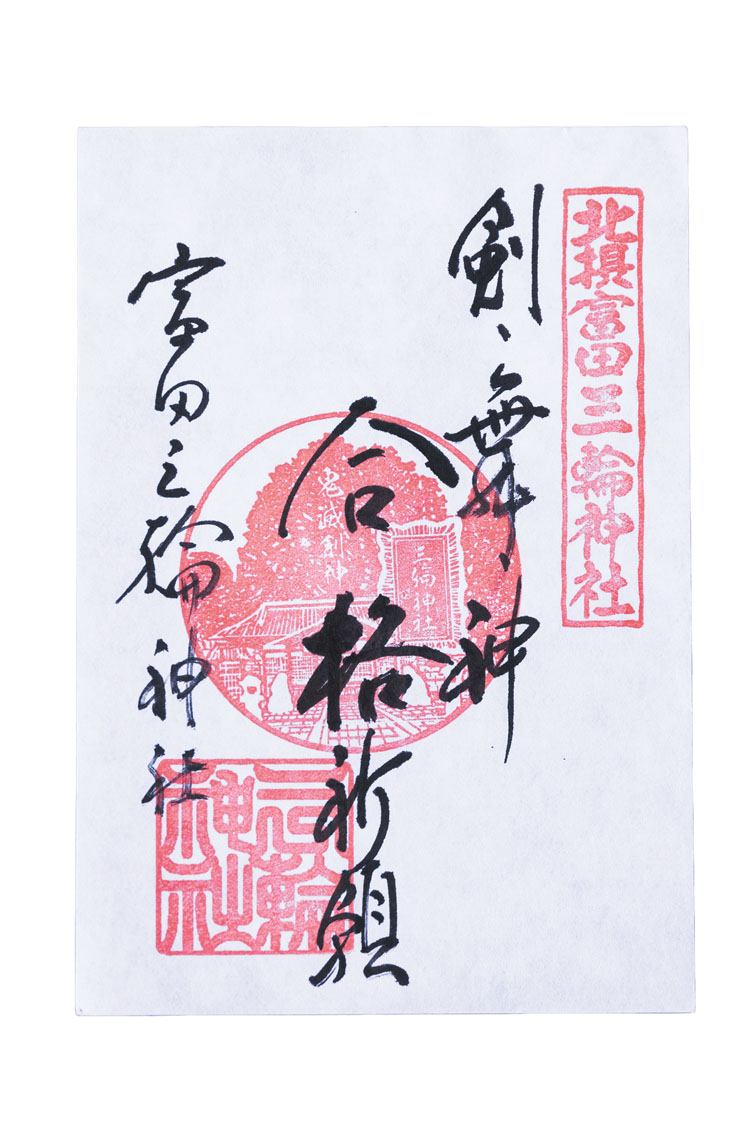 北摂富田三輪神社
剣、舞、神
合格祈願
鬼滅剣神
三輪神社
富田三輪神社
三輪
神社